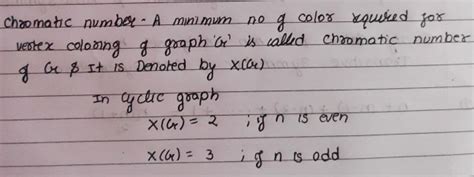 Chromatic number - A minimum no of color required for
vertex coloring of graph 'G' is called chromatic number
of G & It is Denoted by X(G)
In cyclic graph
X(G) = 2 ; if n is even
X(G) = 3 ; if n is odd